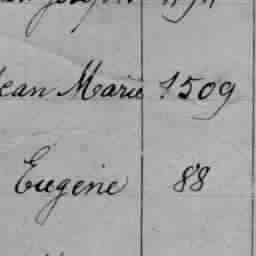 Jean Marie 1509
Eugène 88